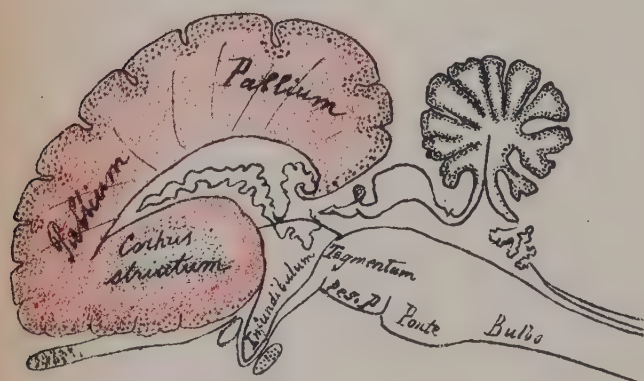 Pallium
Pallium
Corpus
striatum
Infundibulum
Tegmentum
Pes. P.
Ponte
Bulbo